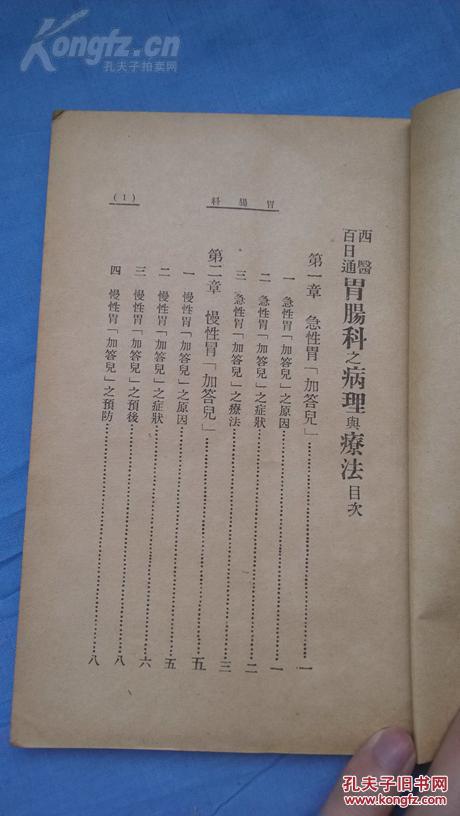 Kongfz.cn
孔夫子拍卖网
(1)
胃腸科
西醫
百日通
胃腸科之病理與療法目次
第一章 急性胃「加答兒」……一
一 急性胃「加答兒」之原因……一
二 急性胃「加答兒」之症狀……二
三 急性胃「加答兒」之療法……三
第二章 慢性胃「加答兒」……五
一 慢性胃「加答兒」之原因……五
二 慢性胃「加答兒」之症狀……六
三 慢性胃「加答兒」之預後……八
四 慢性胃「加答兒」之預防……八
孔夫子旧书网
www.kongfz.com